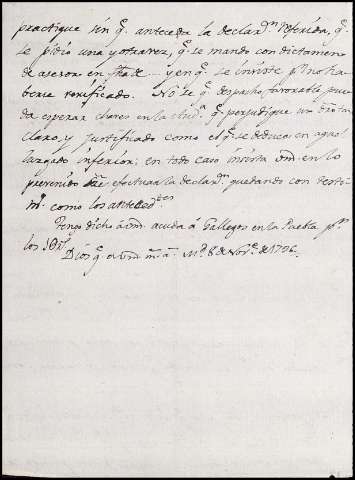 practique sin q.e anteceda la declar.on referida, q.e
se pidio una y otra vez, q.e se mando con dictamen
de asesor en y en q.e se insiste p.r no ha
berse verificado. No se q.e despacho favorable pue
da esperar en la q.e perjudique un dro tan
claro, y justificado como el q.e se deduce en aquel
juzgado inferior; en todo caso insista vm. en lo
prevenido efectuar la declar.on quedando con testi
m.o como los anteced.tes
Tengo dicho a vm. acuda á Gallegos en la Puebla p.r
los
Dios g.e a vm. m.s a.s M.d 8 de Nov.e de 1796.